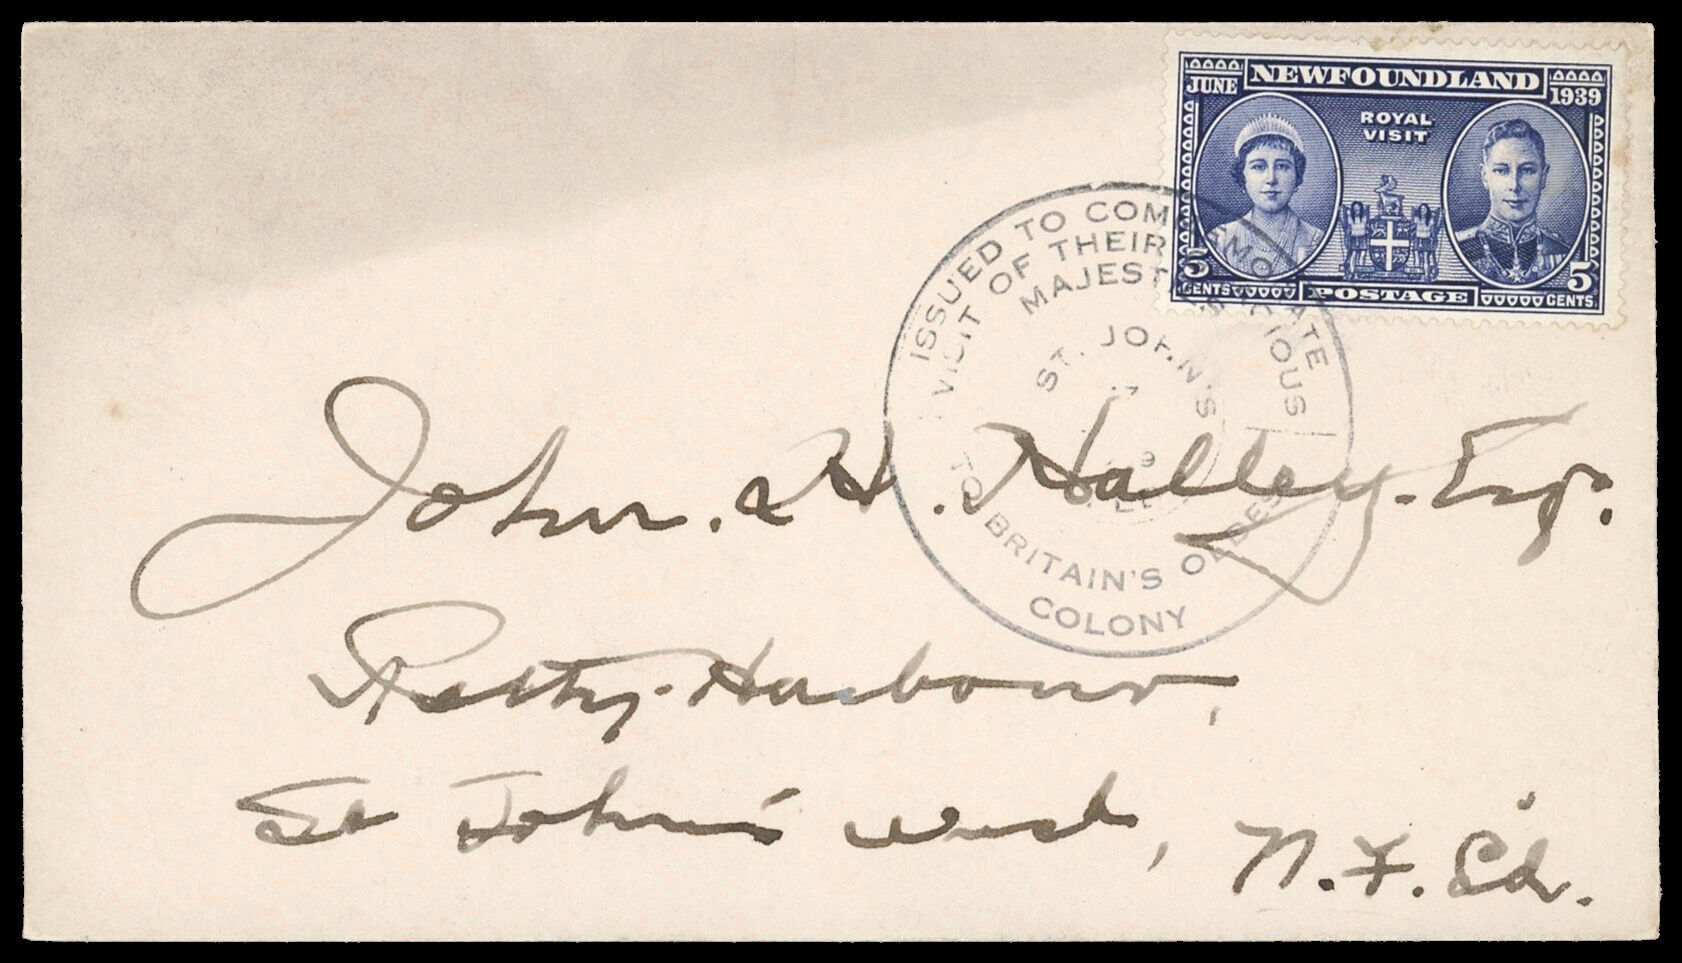 NEWFOUNDLAND
JUNE 1939
ROYAL
VISIT
5 5
CENTS POSTAGE CENTS
ISSUED TO COMMEMORATE
VISIT OF THEIR GRACIOUS
MAJESTIES
ST. JOHN'S
TO BRITAIN'S OLDEST
COLONY
John. H. Halley. Esq.
Petty-Harbour,
St John's West, N.F.Ld.